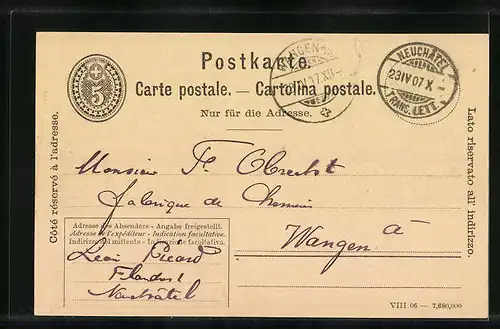 Postkarte.
Carte postale. — Cartolina postale.
Nur für die Adresse.
5
WANGEN
NEUCHÂTEL
23 IV 07 X
TRANS. LETT.
Côté réservé à l'adresse.
Lato riservato all' indirizzo.
Monsieur F. Obrecht
fabrique de
à
Wangen
Adresse des Absenders - Angabe freigestellt.
Adresse de l'expéditeur - Indication facultative.
Indirizzo del mittente - Indicazione facultativa.
Léon Ricard
Flandres 1
Neuchâtel
VIII 06 — 7,680,000